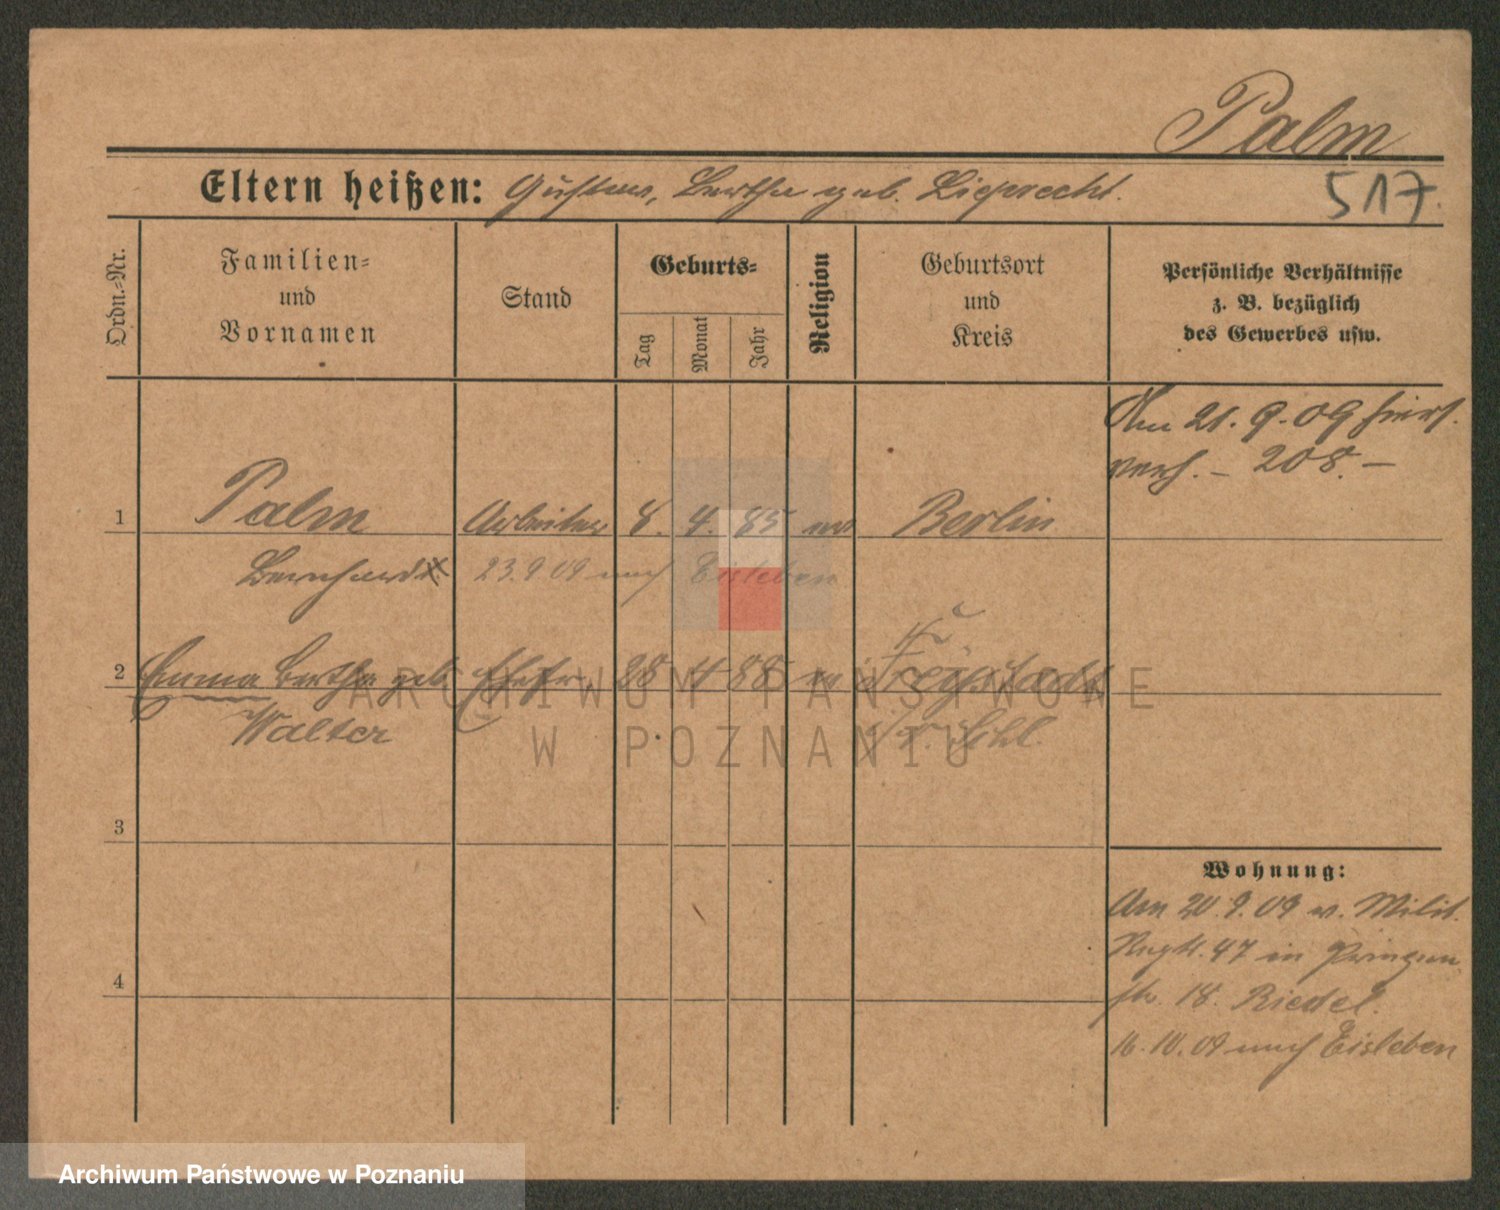 Palm
Eltern heißen: Gustav, Bertha geb. Lieprecht.
517.
Ordn.-Nr.
Familien=
und
Vornamen
Stand
Geburts=
Tag
Monat
Jahr
Religion
Geburtsort
und
Kreis
Persönliche Verhältnisse
z. B. bezüglich
des Gewerbes usw.
Am 21. 9. 09 hier
verh. – 208. –
1 Palm Arbeiter 8. 4. 85 ev Berlin
Bernhard 23.9 09 nach Eisleben
2 Emma Bertha geb. Ehefr. 28 4 88 ev Freystadt
Walter
Schl.
3
4
Wohnung:
Am 20.9.09 v. Milit.
Regt. 47 in Prinzen
str. 18. Riedel.
16.10.09 nach Eisleben
ARCHIWUM PAŃSTWOWE
W POZNANIU
Archiwum Państwowe w Poznaniu